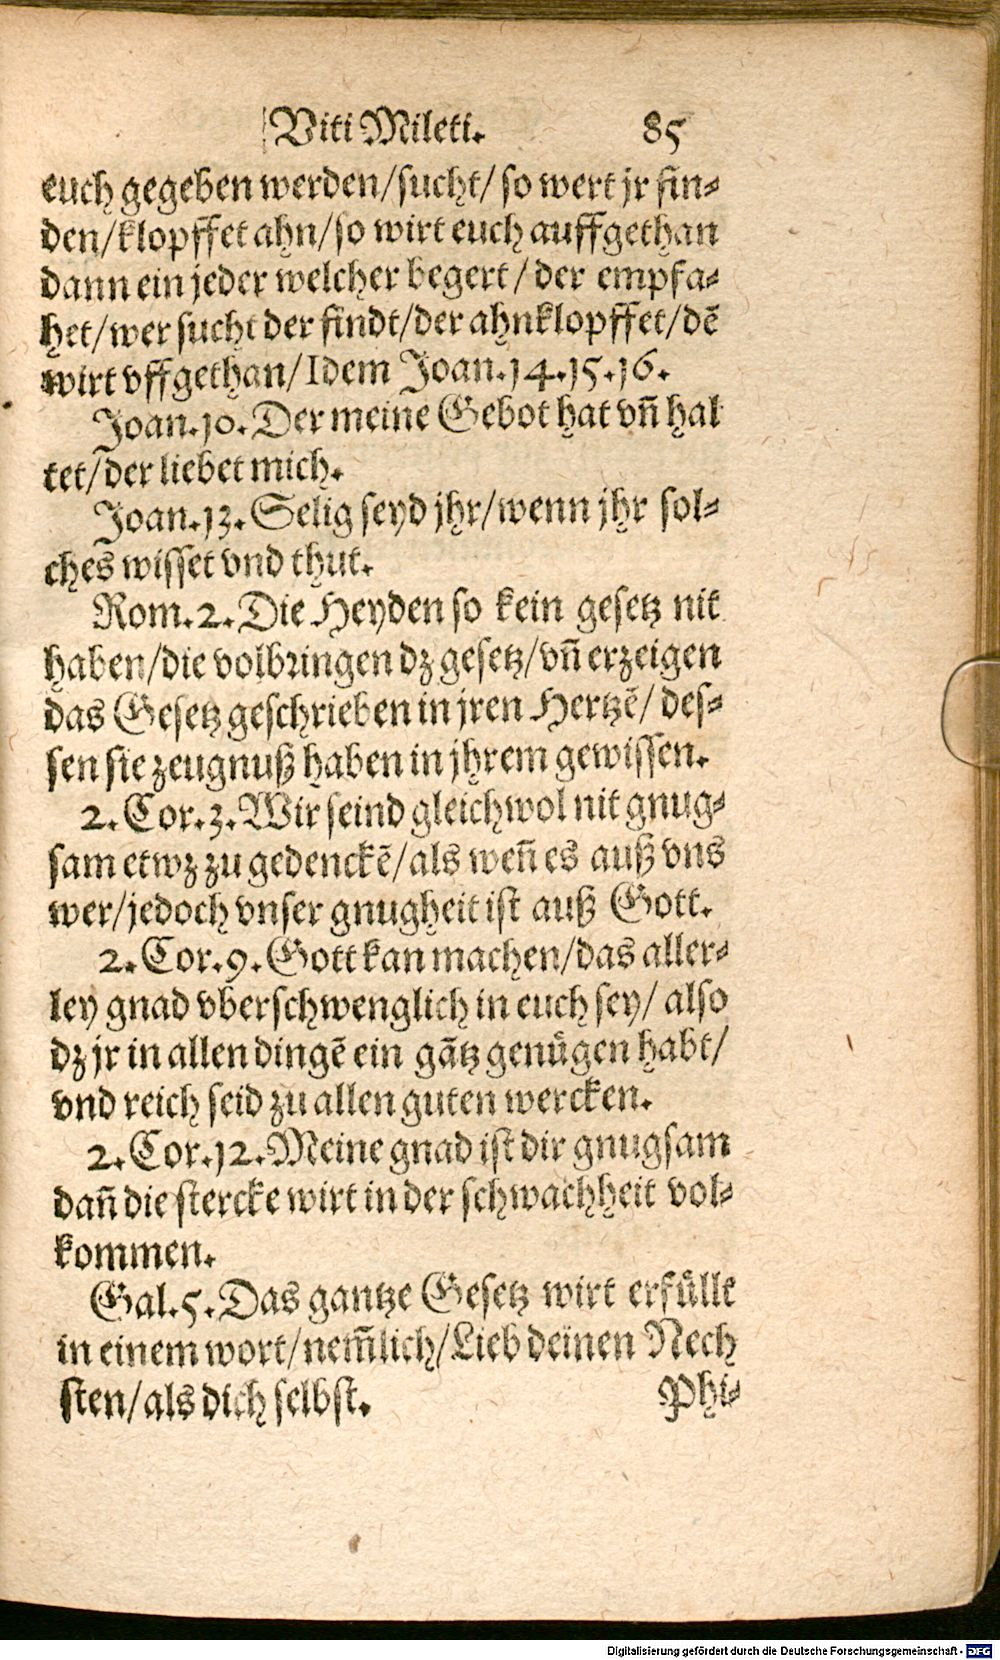 Viti Mileti. 85
euch gegeben werden/sucht/ so wert jr fin-
den/klopffet ahn/so wirt euch auffgethan
dann ein jeder welcher begert / der empfa-
het/wer sucht der findt/der ahnklopffet/dē
wirt vffgethan/Idem Joan.14.15.16.
Joan.10. Der meine Gebot hat vn̄ hal
tet/der liebet mich.
Joan.13. Selig seyd jhr/wenn jhr sol-
ches wisset vnd thut.
Rom.2. Die Heyden so kein gesetz nit
haben/die volbringen dz gesetz/vn̄ erzeigen
das Gesetz geschrieben in jren Hertzē/ des-
sen sie zeugnuß haben in jhrem gewissen.
2. Cor.3. Wir seind gleichwol nit gnug-
sam etwz zu gedenckē/als wen̄ es auß vns
wer/jedoch vnser gnugheit ist auß Gott.
2. Cor.9. Gott kan machen/das aller-
ley gnad vberschwenglich in euch sey/ also
dz jr in allen dingē ein gātz genuͤgen habt/
vnd reich seid zu allen guten wercken.
2. Cor.12. Meine gnad ist dir gnugsam
dan̄ die stercke wirt in der schwachheit vol-
kommen.
Gal.5. Das gantze Gesetz wirt erfuͤllt
in einem wort/nem̄lich/Lieb deinen Nech
sten/als dich selbst. Phi-
Digitalisierung gefördert durch die Deutsche Forschungsgemeinschaft - DFG